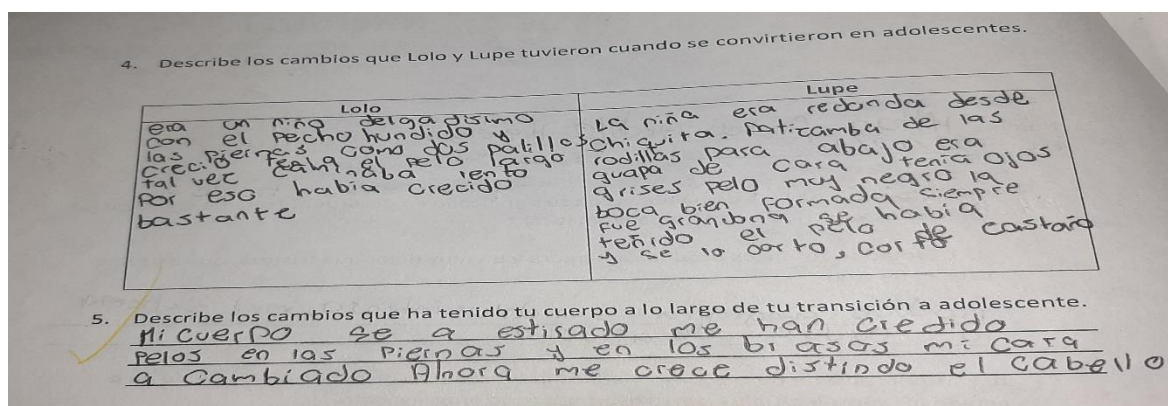 4. Describe los cambios que Lolo y Lupe tuvieron cuando se convirtieron en adolescentes.
Lolo
era un niño delgadisimo
con el pecho hundido y
las piernas como dos palillos
crecido tenia el pelo largo
tal vez caminaba lento
por eso habia crecido
bastante
Lupe
La niña era redonda desde
chiquita. Paticamba de las
rodillas para abajo era
guapa de cara tenia ojos
grises pelo muy negro la
boca bien formada siempre
fue grandona se habia
teñido el pelo de castaño
y se lo corto, corto
5. Describe los cambios que ha tenido tu cuerpo a lo largo de tu transición a adolescente.
Mi cuerpo se a estisado me han credido
pelos en las piernas y en los brasos mi cara
a cambiado Ahora me crece distindo el cabello